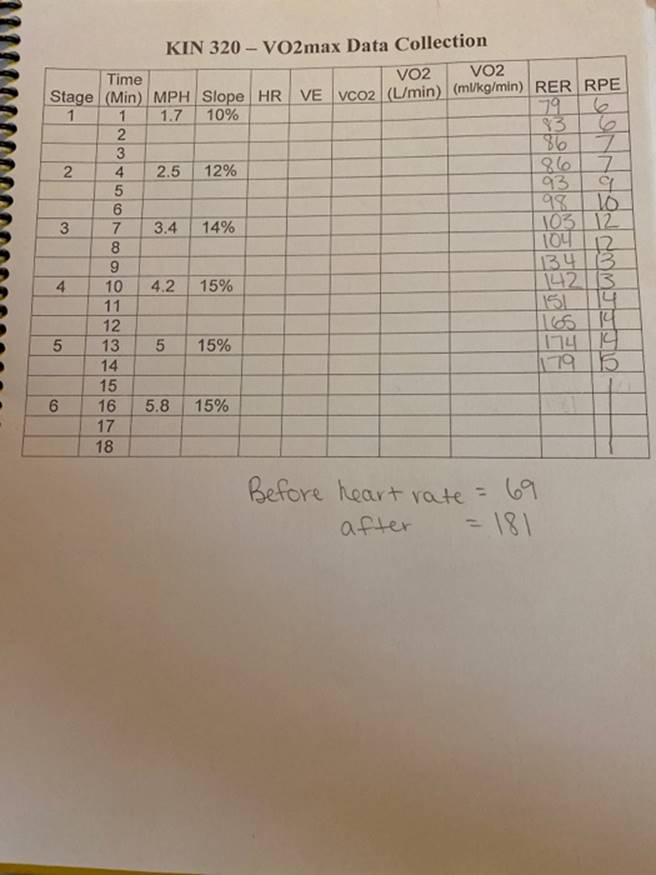 KIN 320 – VO2max Data Collection
Stage Time (Min) MPH Slope HR VE VCO2 VO2 (L/min) VO2 (ml/kg/min) RER RPE
1 1 1.7 10% 79 6
2 83 6
3 86 7
2 4 2.5 12% 86 7
5 93 9
6 98 10
3 7 3.4 14% 103 12
8 104 12
9 134 13
4 10 4.2 15% 142 13
11 151 14
12 165 14
5 13 5 15% 174 14
14 179 15
15
6 16 5.8 15%
17
18
Before heart rate = 69
after = 181